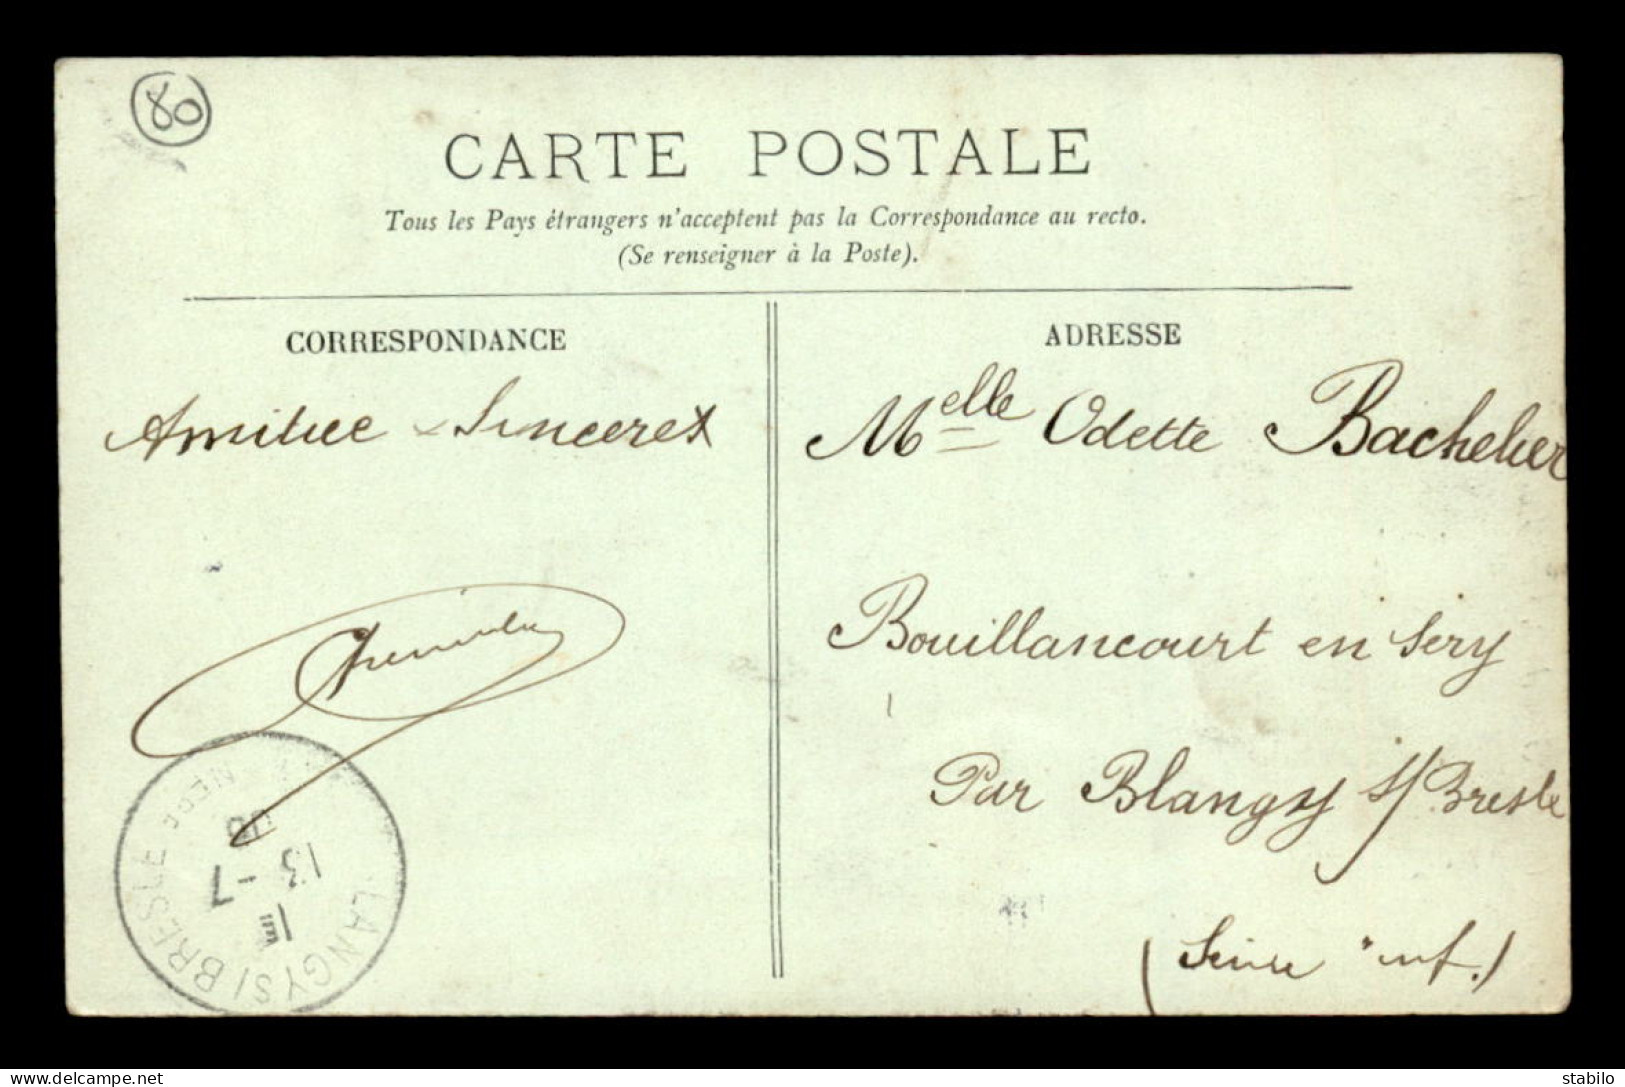 80
CARTE POSTALE
Tous les Pays étrangers n'acceptent pas la Correspondance au recto.
(Se renseigner à la Poste).
CORRESPONDANCE
Amitiée Sincères
ADRESSE
Melle Odette Bachelier
Bouillancourt en Sery
Par Blangy s/ Bresle
(Seine inf.)
LANGY S/ BRESLE
13 -7
www.delcampe.net
stabilo